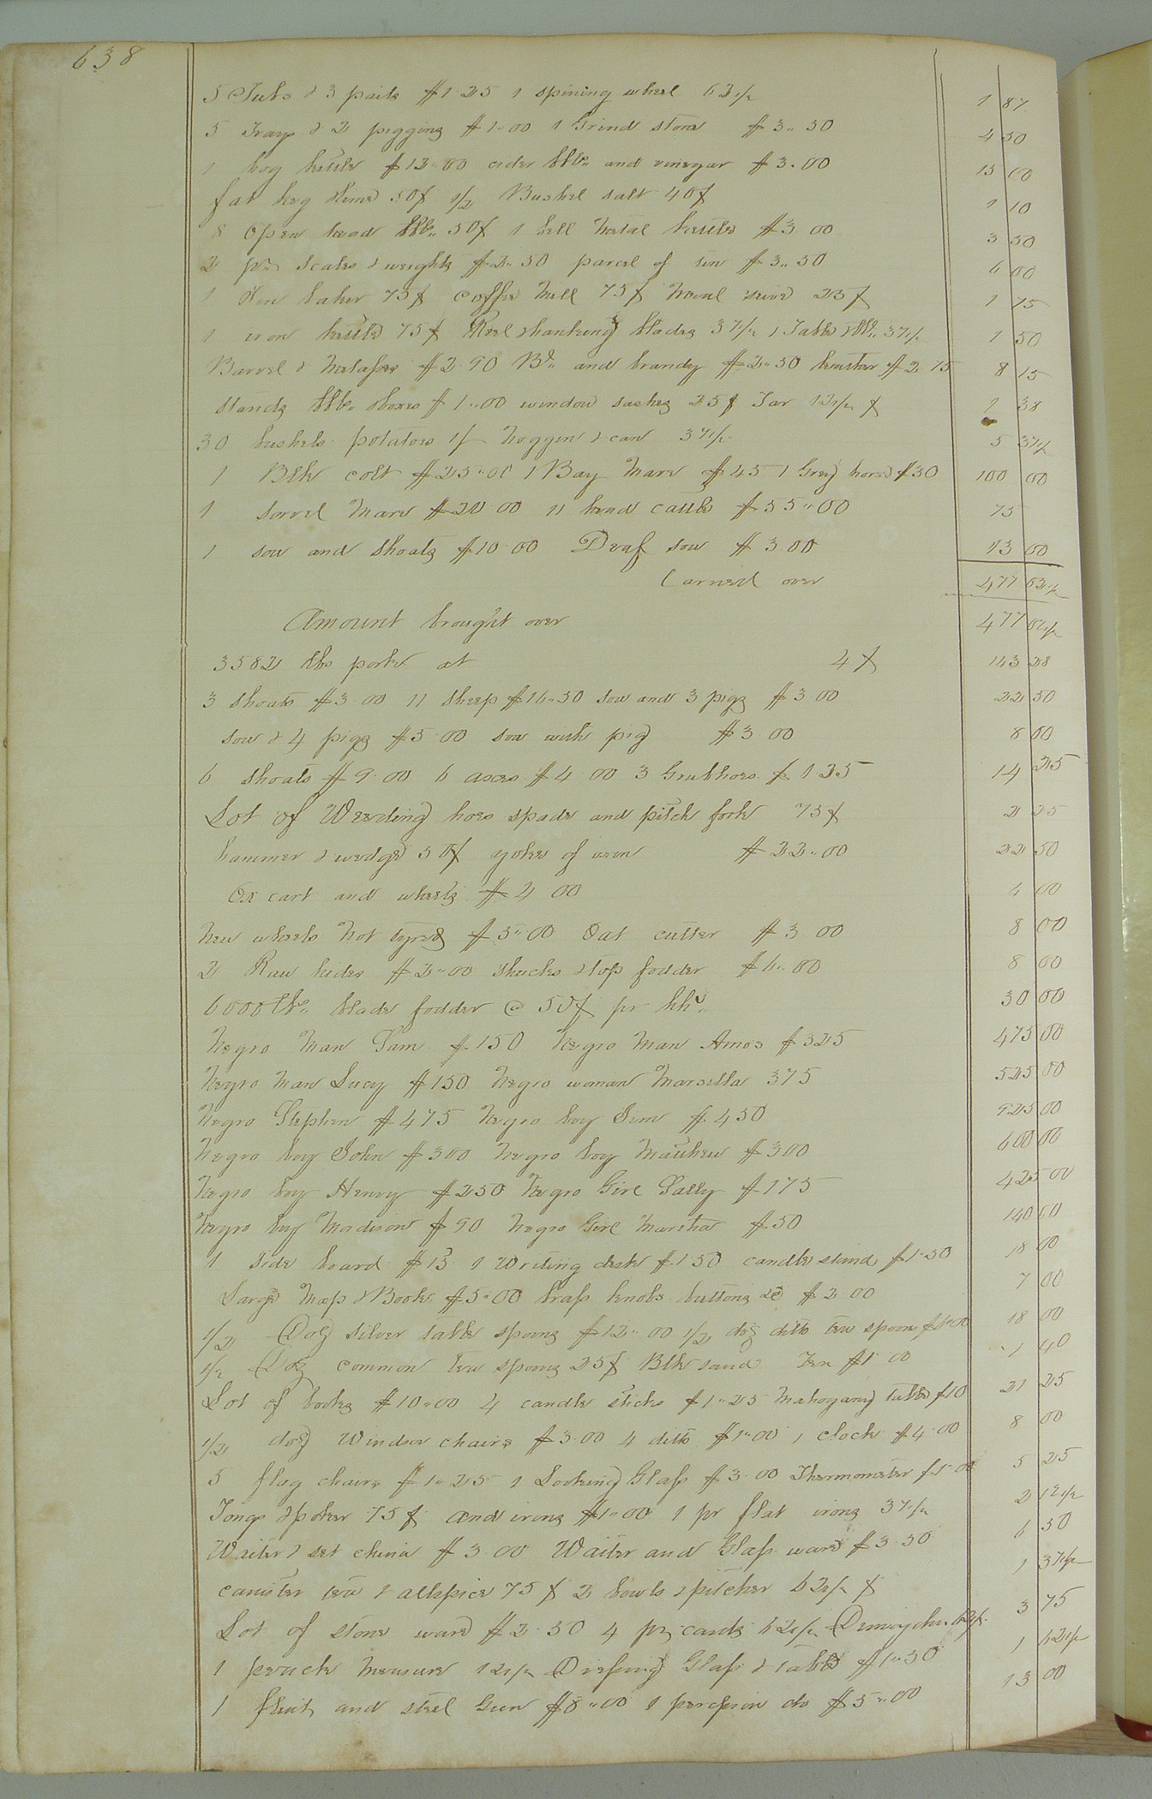 638
5 Tubs & 3 pails $1.25 1 spining wheel 62½ 1 87
5 Trays & 2 piggins $1"00 1 Grind stone $3"50 4 50
1 keg kettle $12"00 cider bbls and vinegar $3.00 15 00
fat keg 50¢ 1/2 Bushel salt 40¢ 1 10
8 Open head bbls 50¢ 1 bell metal kettle $3 00 3 50
2 pr scales & weights $2"50 parcel of tin $3"50 6 00
1 baker 75¢ coffee mill 75¢ meal sieve 25¢ 1 75
1 iron kettle 75¢ Reel & hankering blades 37½ 1 Table & bbl 37½ 1 50
Barrel & Molasses $2 90 Bl and brandy $2"50 $2 75 8 15
Stands bbls boxes $1"00 window sashes 25¢ Tar 12½¢ 1 38
30 bushels potatoes noggin & can 37½ 5 37½
1 Blk colt $25"00 1 Bay Mare $45 1 Grey horse $30 100 00
1 Sorrel Mare $20 00 11 head cattle $55"00 75
1 sow and Shoats $10 00 Deaf sow $3.00 13 00
Carried over 477 62½
Amount brought over 477 62½
3582 lbs pork at 4¢ 143 28
3 shoats $3 00 11 sheep $16"50 sow and 3 pigs $3 00 22 50
sow & 4 pigs $5 00 sow with pig $3 00 8 00
6 shoats $9.00 6 axes $4 00 3 Grubhoes $1 25 14 25
Lot of Weeding hoes spade and pitch fork 75¢ 2 25
hammer & wedge 50¢ yoke of oxen $22"00 22 50
Ox cart and wheels $4 00 4 00
New wheels Not tyred $5"00 Oat cutter $3 00 8 00
2 Raw hides $2"00 shucks & top fodder $6"00 8 00
6000 lbs blade fodder @ 50¢ pr hh 30 00
Negro Man Sam $150 Negro Man Amos $325 475 00
Negro Man Lucy $150 Negro woman Marsella 375 525 00
Negro Stephen $475 Negro boy Jim $450 925 00
Negro boy John $300 Negro boy Matthew $300 600 00
Negro boy Henry $250 Negro Girl Sally $175 425 00
Negro boy Madison $90 Negro Girl Martha $50 140 00
1 Side board $15 1 Writing desk $1 50 candle stand $1"50 18 00
Large Map & Book $5"00 brass knobs buttons &c $2 00 7 00
1/2 Doz silver table spoons $12"00 1/2 doz ditto tea spoons $6"00 18 00
1/2 Doz common tea spoons 25¢ Blk sand 00 1 40
Lot of books $10"00 4 candle sticks $1"25 Mahogany table $10 21 25
1/2 doz Windsor chairs $3 00 4 ditto $1"00 1 clock $4 00 8 00
5 flag chairs $1"25 1 Looking Glass $3 00 Thermometer $1 00 5 25
Tongs & poker 75¢ andirons $1"00 1 pr flat irons 37½ 2 12½
Waiter & set china $3.00 Waiter and Glass ware $3 50 6 50
canister tea & allspice 75¢ 2 bowls & pitcher 62½¢ 1 37½
Lot of stone ware $2.50 4 pr cards 62½ Demijohn 62½ 3 75
1 measure 12½ Dressing Glass & table $1"50 1 62½
1 flint and steel Gun $8"00 1 do $5"00 13 00